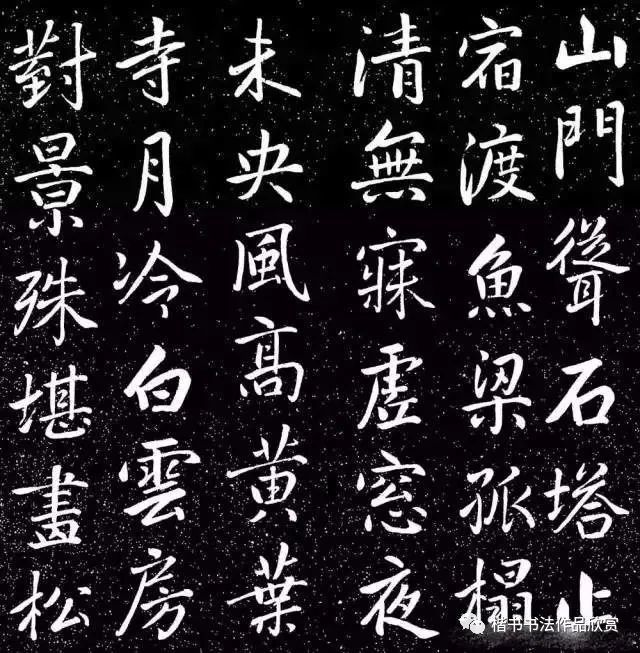 山門聳石塔止
宿渡魚梁孤榻
清無寐虛窓夜
未央風高黃葉
寺月冷白雲房
對景殊堪畫松
楷书书法作品欣赏